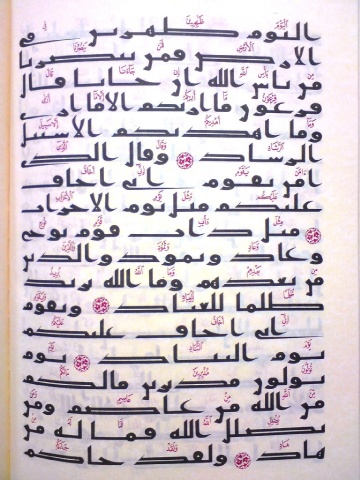 اليوم ظهرين في
الارض فمن ينصرنا
من باس الله ان جانا قال
فرعون ما اريكم الا ما ارى
وما اهديكم الا سبيل
الرشاد وقال الذي
امن يقوم اني اخاف
عليكم مثل يوم الاحزاب
مثل داب قوم نوح
وعاد وثمود والذين
من بعدهم وما الله يريد
ظلما للعباد ويقوم
اني اخاف عليكم
يوم التناد يوم
تولون مدبرين ما لكم
من الله من عاصم ومن
يضلل الله فما له من
هاد ولقد جاكم